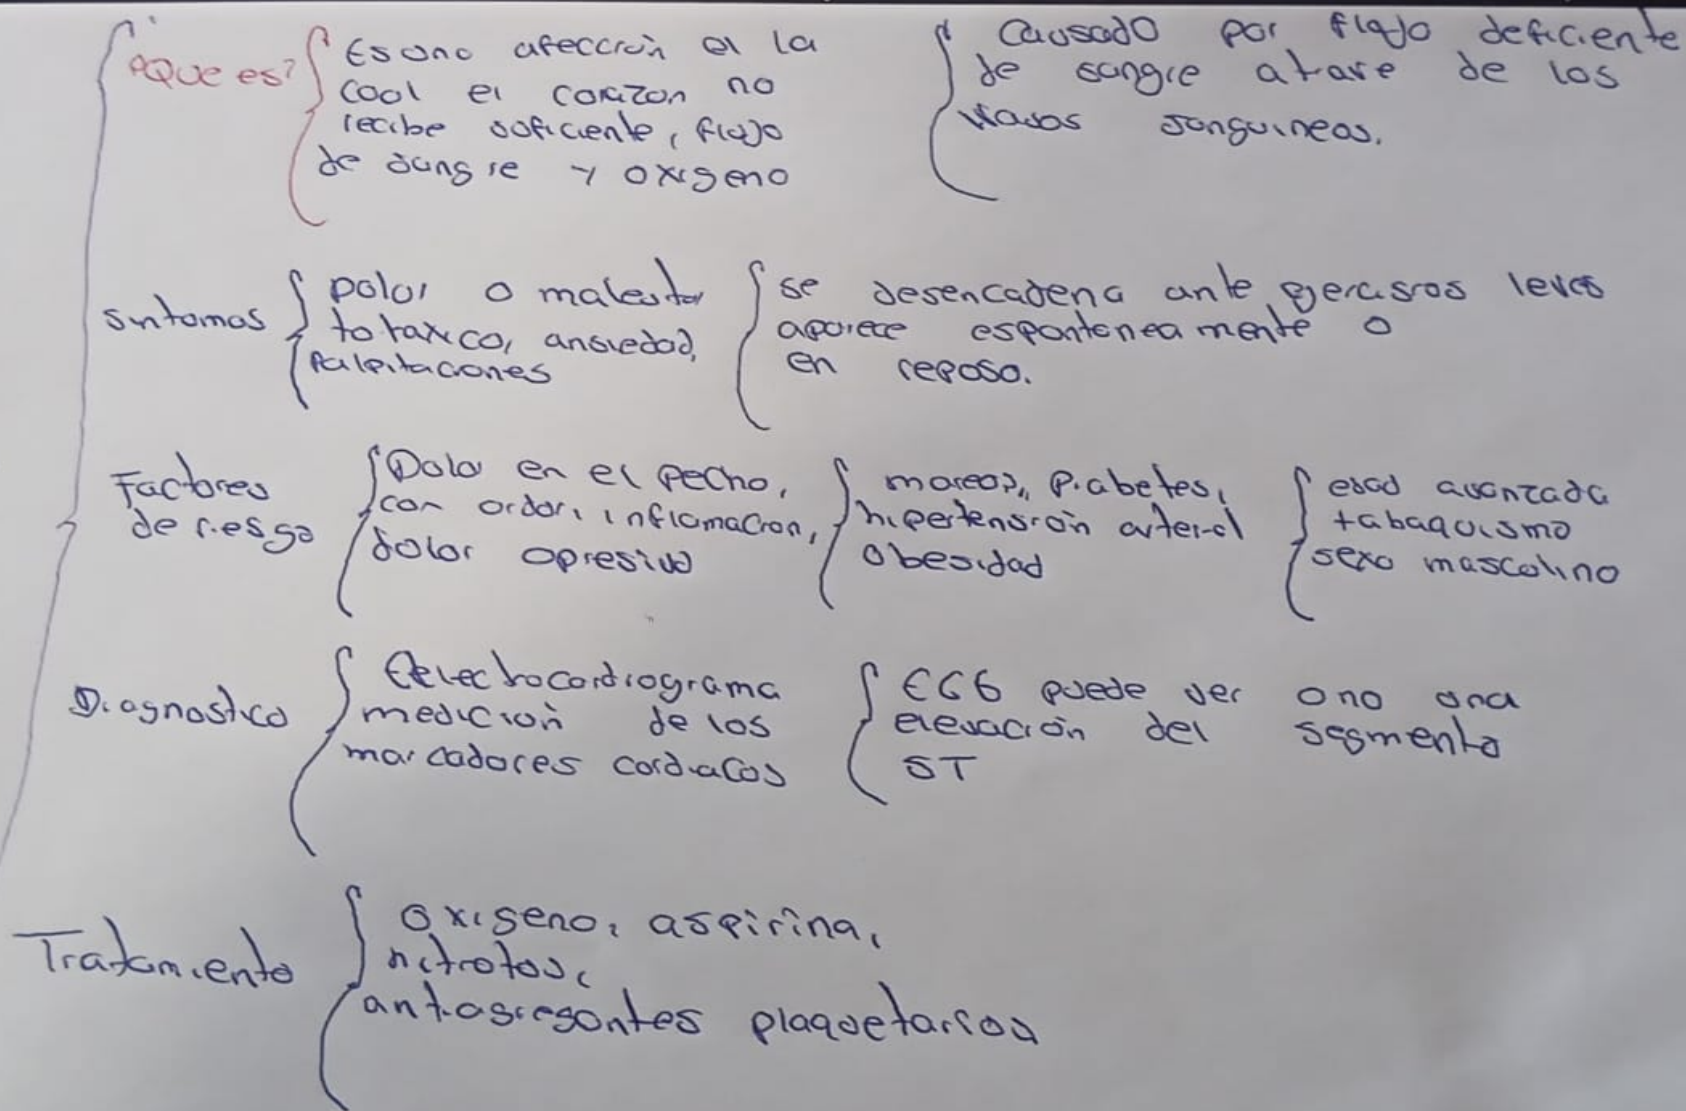 ¿Que es?
Es una afeccion en la
cual el corazon no
recibe suficiente, flujo
de sangre y oxigeno
Causado por flujo deficiente
de sangre a trave de los
vasos sanguineos.
sintomas
Dolor o malestar
toraxico, ansiedad,
Palpitaciones
se desencadena ante ejercisios leves
aparece espontaneamente o
en reposo.
Factores
de riesgo
Dolor en el pecho,
con ardor, inflamacion,
dolor opresivo
mareos, Diabetes,
hipertensión arterial
Obesidad
edad avanzada
tabaquismo
sexo masculino
Diagnostico
Electrocardiograma
medición de los
marcadores cardiacos
ECG puede ver o no una
elevación del segmento
ST
Tratamiento
Oxigeno, aspirina,
nitratos,
antiagregantes plaquetarios